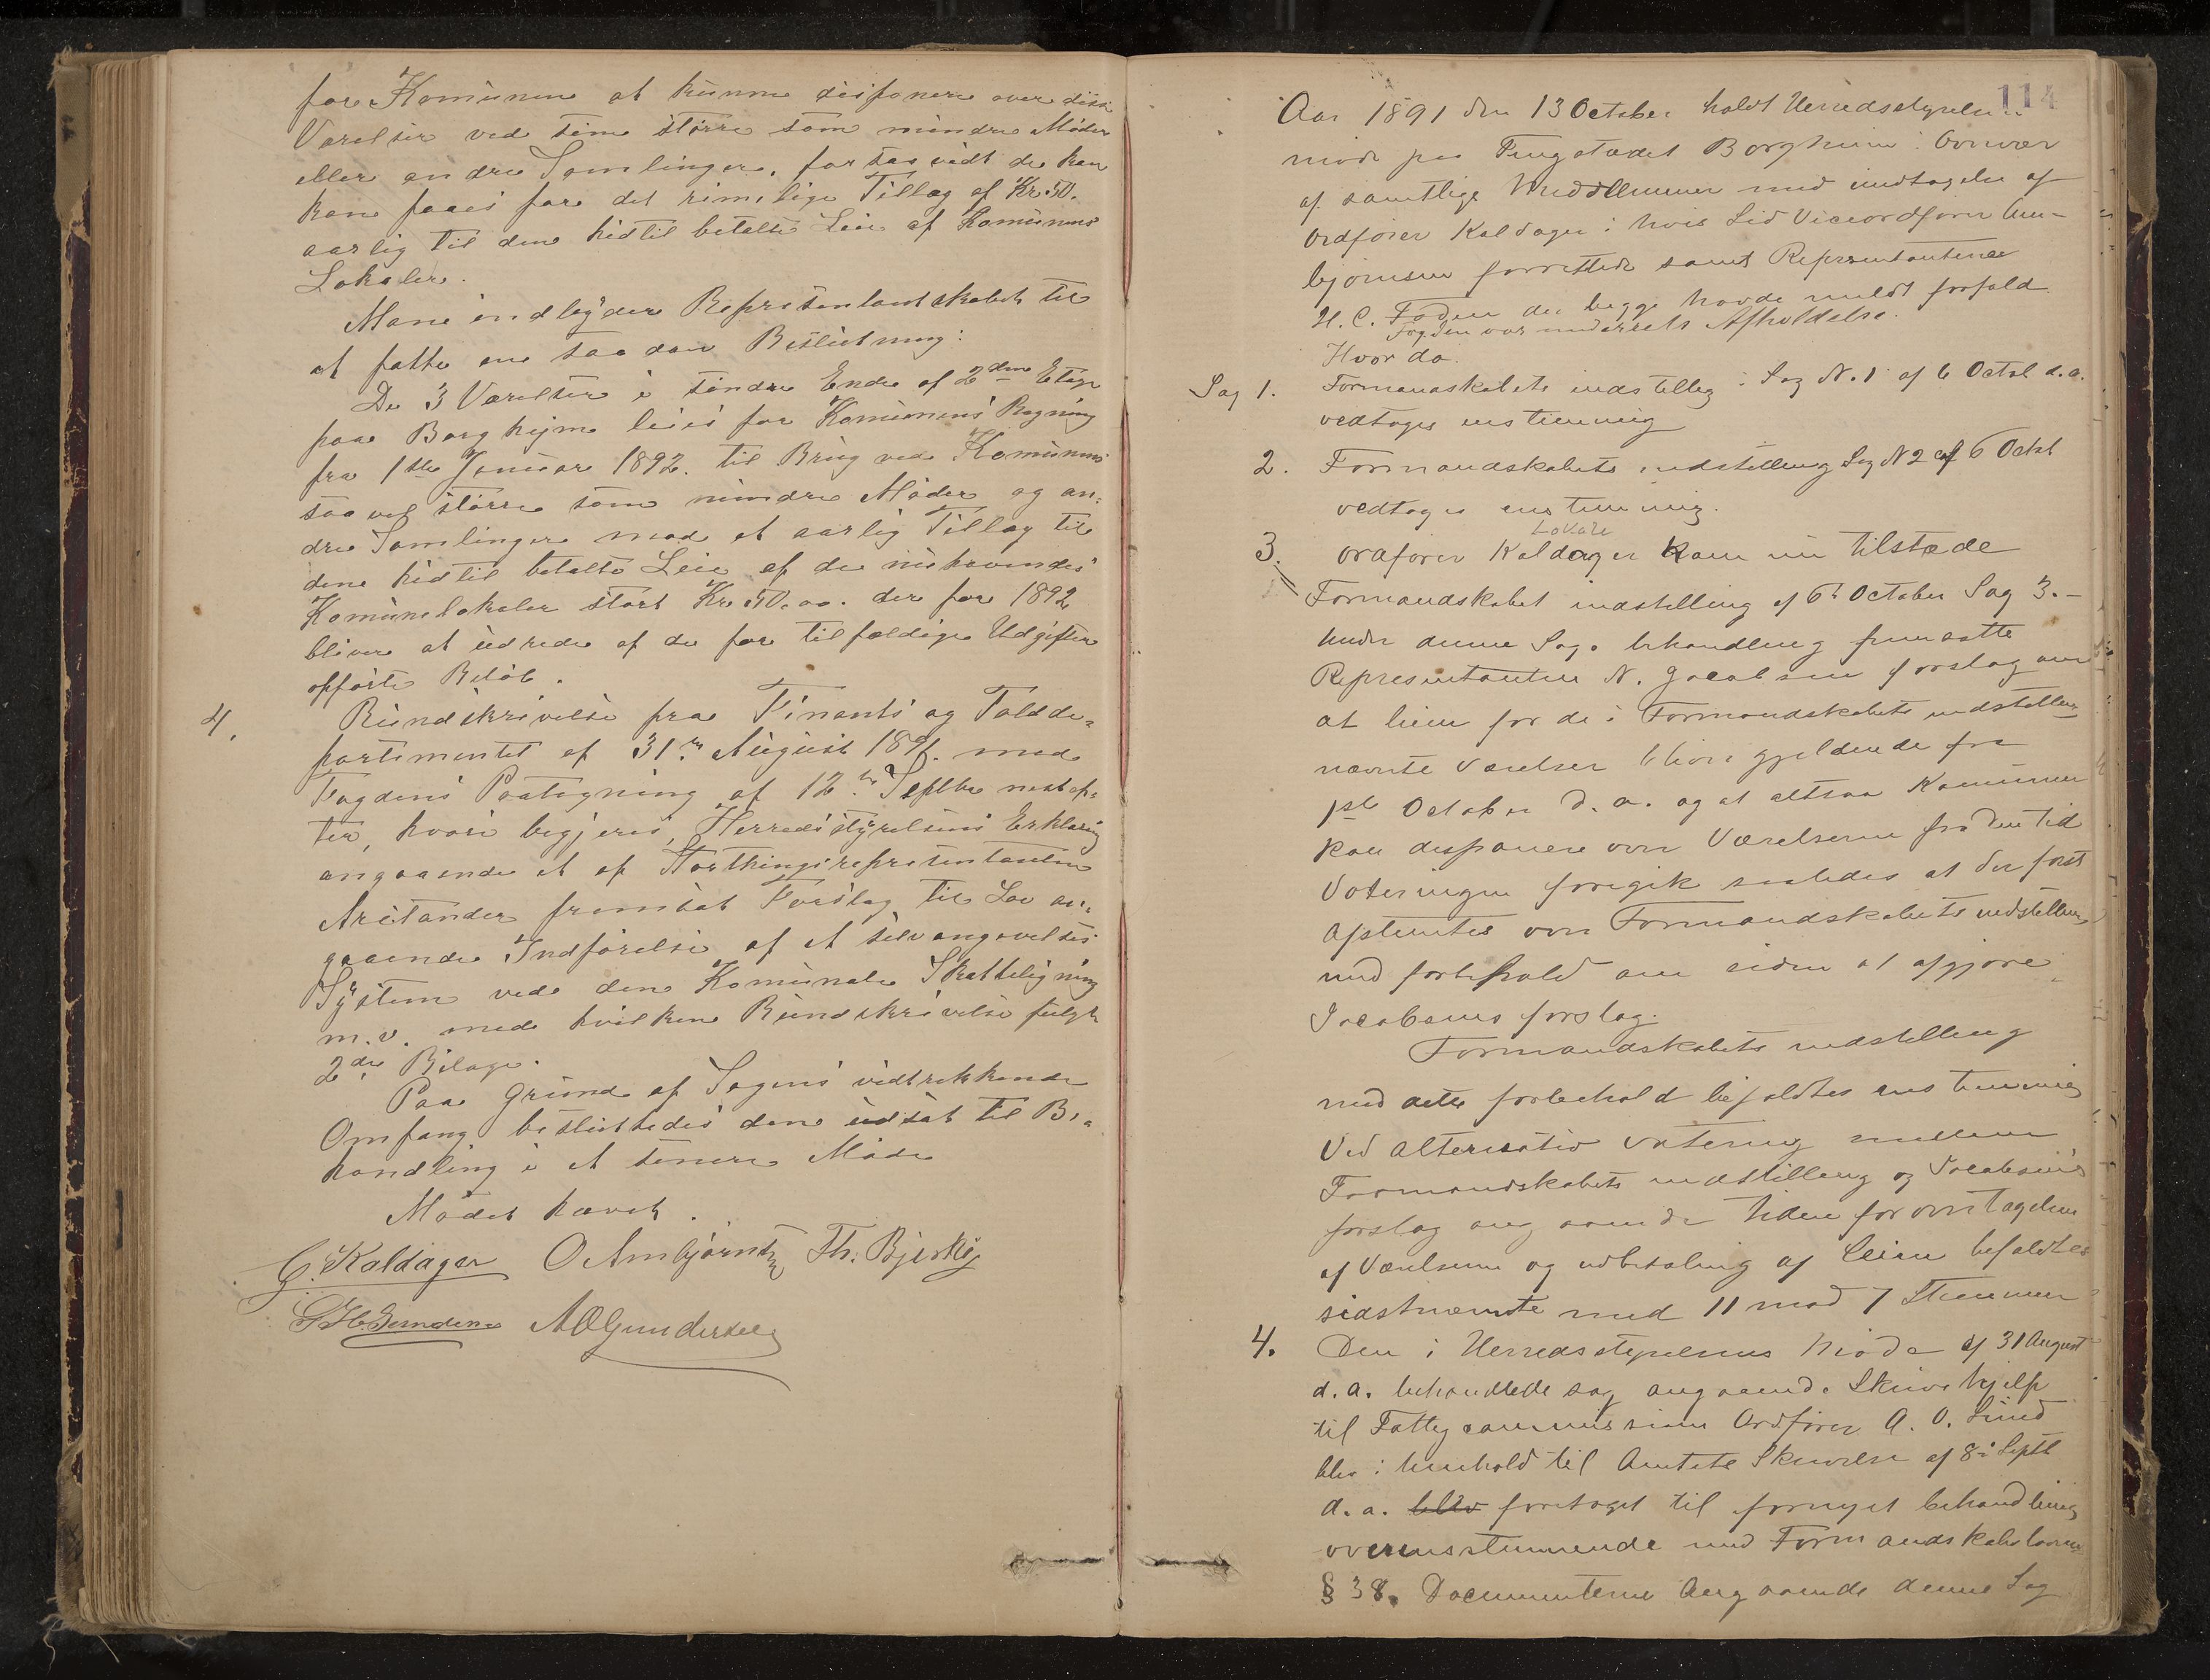 for Komunen at kunne disponere over disse
Værelser ved sine större som mindre Möder
eller andre Samlinger, forsaavidt de kan
kan faaes for det rimelige Tillæg af Kr. 50.
aarlig til den hidtil betalte Leie af Komunens
Lokaler.
Man indbyder Repræsentantskabet til
at fatte en saadan Beslutning:
De 3 Værelser i söndre Ende af 2den Etage
paa Borgheim leies for Komunens Regning
fra 1ste Januar 1892. til Brug ved Komunens
saavel större som mindre Möder og an-
dre Samlinger mod et aarlig Tillæg til
den hidtil betalte Leie af de nuhavende
Komunelokaler stort Kr. 50.00. der for 1892
bliver at udrede af de for tilfældige Udgifter
opförte Belöb.
4. Rundskrivelse fra Finants og Tolde-
partementet af 31te August 1891. med
Fogdens Paategning af 12te Septbr næstef-
ter, hvori begjeres Herredsstyrelsens Erklæring
angaaende et af Storthingsrepræsentanten
Arctander fremsat Forslag til Lov an-
gaaende Indförelse af et selvangivelses
System ved den Komunale Skatteligning
m.v. med hvilken Rundskrivelse fulgte
2de Bilage.
Paa Grund af Sagens vidtrækkende
Omfang besluttedes den udsat til Be-
handling i et senere Möde
Mödet hævet.
G. Kaldager O Ambjörnsen Th. Bjerke
AOGundersen
114
Aar 1891 den 13 October holdt Herredsstyrelsen
möde paa Tingstædet Borgheim: Overvær
af samtlige Meddlemmer med undtagelse af
Ordförer Kaldager i hvis Sted Viceordförer Am-
björnsen forrettede samt Representanterne
H. C. Foden der begge havde meldt forfald
Fogden var underrett Afholdelse.
Hvorda.
Sag 1. Formanskabets indstilling i Sag N. 1 af 6 Octob d.a.
vedtages enstemmig
2. Formandskabets indstilling Sag N 2 af 6 Octob
vedtages enstemmig.
Lokale
3. Ordförer Kaldager kom nu tilstæde
Formandskabet indstilling af 6te October Sag 3.-
Under denne Sags behandling fremsatte
Representanten N. Jacobsen forslag om
at leien for de i Formandskabets indstilling
nævnte Værelser bliver gjeldende fra
1ste October d.a. og at altsaa Kommunen
kan disponere over Værelserne fra den tid
Voteringen foregik saaledes at der först
afstemtes over Formandskabets indstilling
med forbehold om siden at afgjöre
Jacobsens forslag.
Formandskabets indstilling
med dette forbehold bifaldtes enstemmig
Ved alternativ votering mellem
Formandskabets indstilling og Jacobsens
forslag angaaende tiden for overtagelsen
af Værelserne og udbetaling af leien bifaldtes
sidstnævnte med 11 mod 7 Stemmer
4. Den i Herredsstyrelsens Möde af 31 August
d.a. behandlede sag angaaende Skrivehjelp
til Fattigcommissionens Ordförer A. O. Lund
blev i henhold til Amtets Skrivelse af 8de Septb
d.a. blev foretaget til fornyet behandling
overensstemmende med Formandskabsloven
§ 38. Documenterne angaaende denne Sag